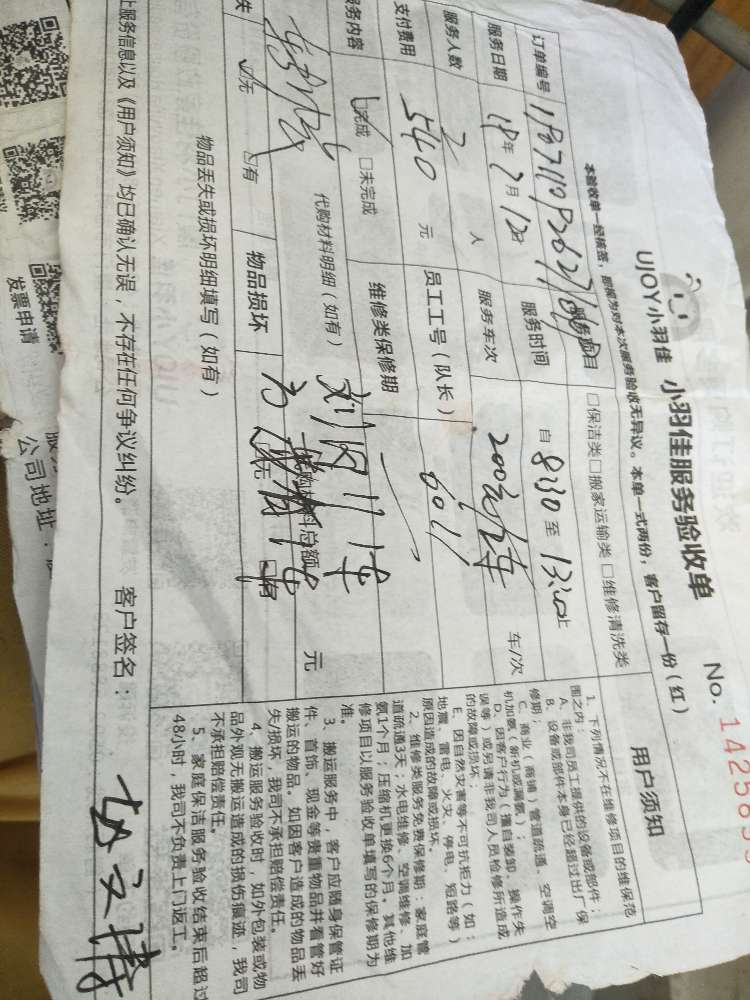 UJOY小羽佳 小羽佳服务验收单
No. 142585
本验收单一经核签，即视为对本次服务验收无异议。本单一式两份，客户留存一份（红）
订单编号
服务项目 □保洁类□搬家运输类□维修清洗类
服务日期 18年7月12日 服务时间 自8:30至13:20止
服务人数 2人 服务车次 车/次
支付费用 540元 员工工号（队长） 6011
服务内容 ☑完成 □未完成 维修类保修期
代购材料明细（如有） 代购材料总额 元
失 ☑无 □有 物品损坏 ☑无 □有
物品丢失或损坏明细填写（如有）
上服务信息以及《用户须知》均已确认无误，不存在任何争议纠纷。 客户签名：
用户须知
1、下列情况不在维修项目的维保范
围之内：
A、非我司员工提供的设备或部件；
B、设备或部件本身已经超过出厂保
修期；
C、商业（商铺）管道疏通、空调空
机加氨（新机或漏氨）；
D、因客户行为（擅自装卸、操作失
误等）或另请非我司人员检修所造成
的故障或损坏；
E、因自然灾害等不可抗拒力（如：
地震、雷电、火灾、停电、短路等）
原因造成的故障或损坏。
2、维修类服务免费保修期：家庭管
道疏通3天；水电维修、空调维修、加
氨1个月；压缩机更换6个月。其他维
修项目以服务验收单填写的保修期为
准。
3、搬运服务中，客户应随身保管证
件、首饰、现金等贵重物品并看管好
搬运的物品。如因客户造成的物品丢
失/损坏，我司不承担赔偿责任。
4、搬运服务验收时，如外包装或物
品外观无搬运造成的损伤痕迹，我司
不承担赔偿责任。
5、家庭保洁服务验收结束后超过
48小时，我司不负责上门返工。
发票申请
公司地址：